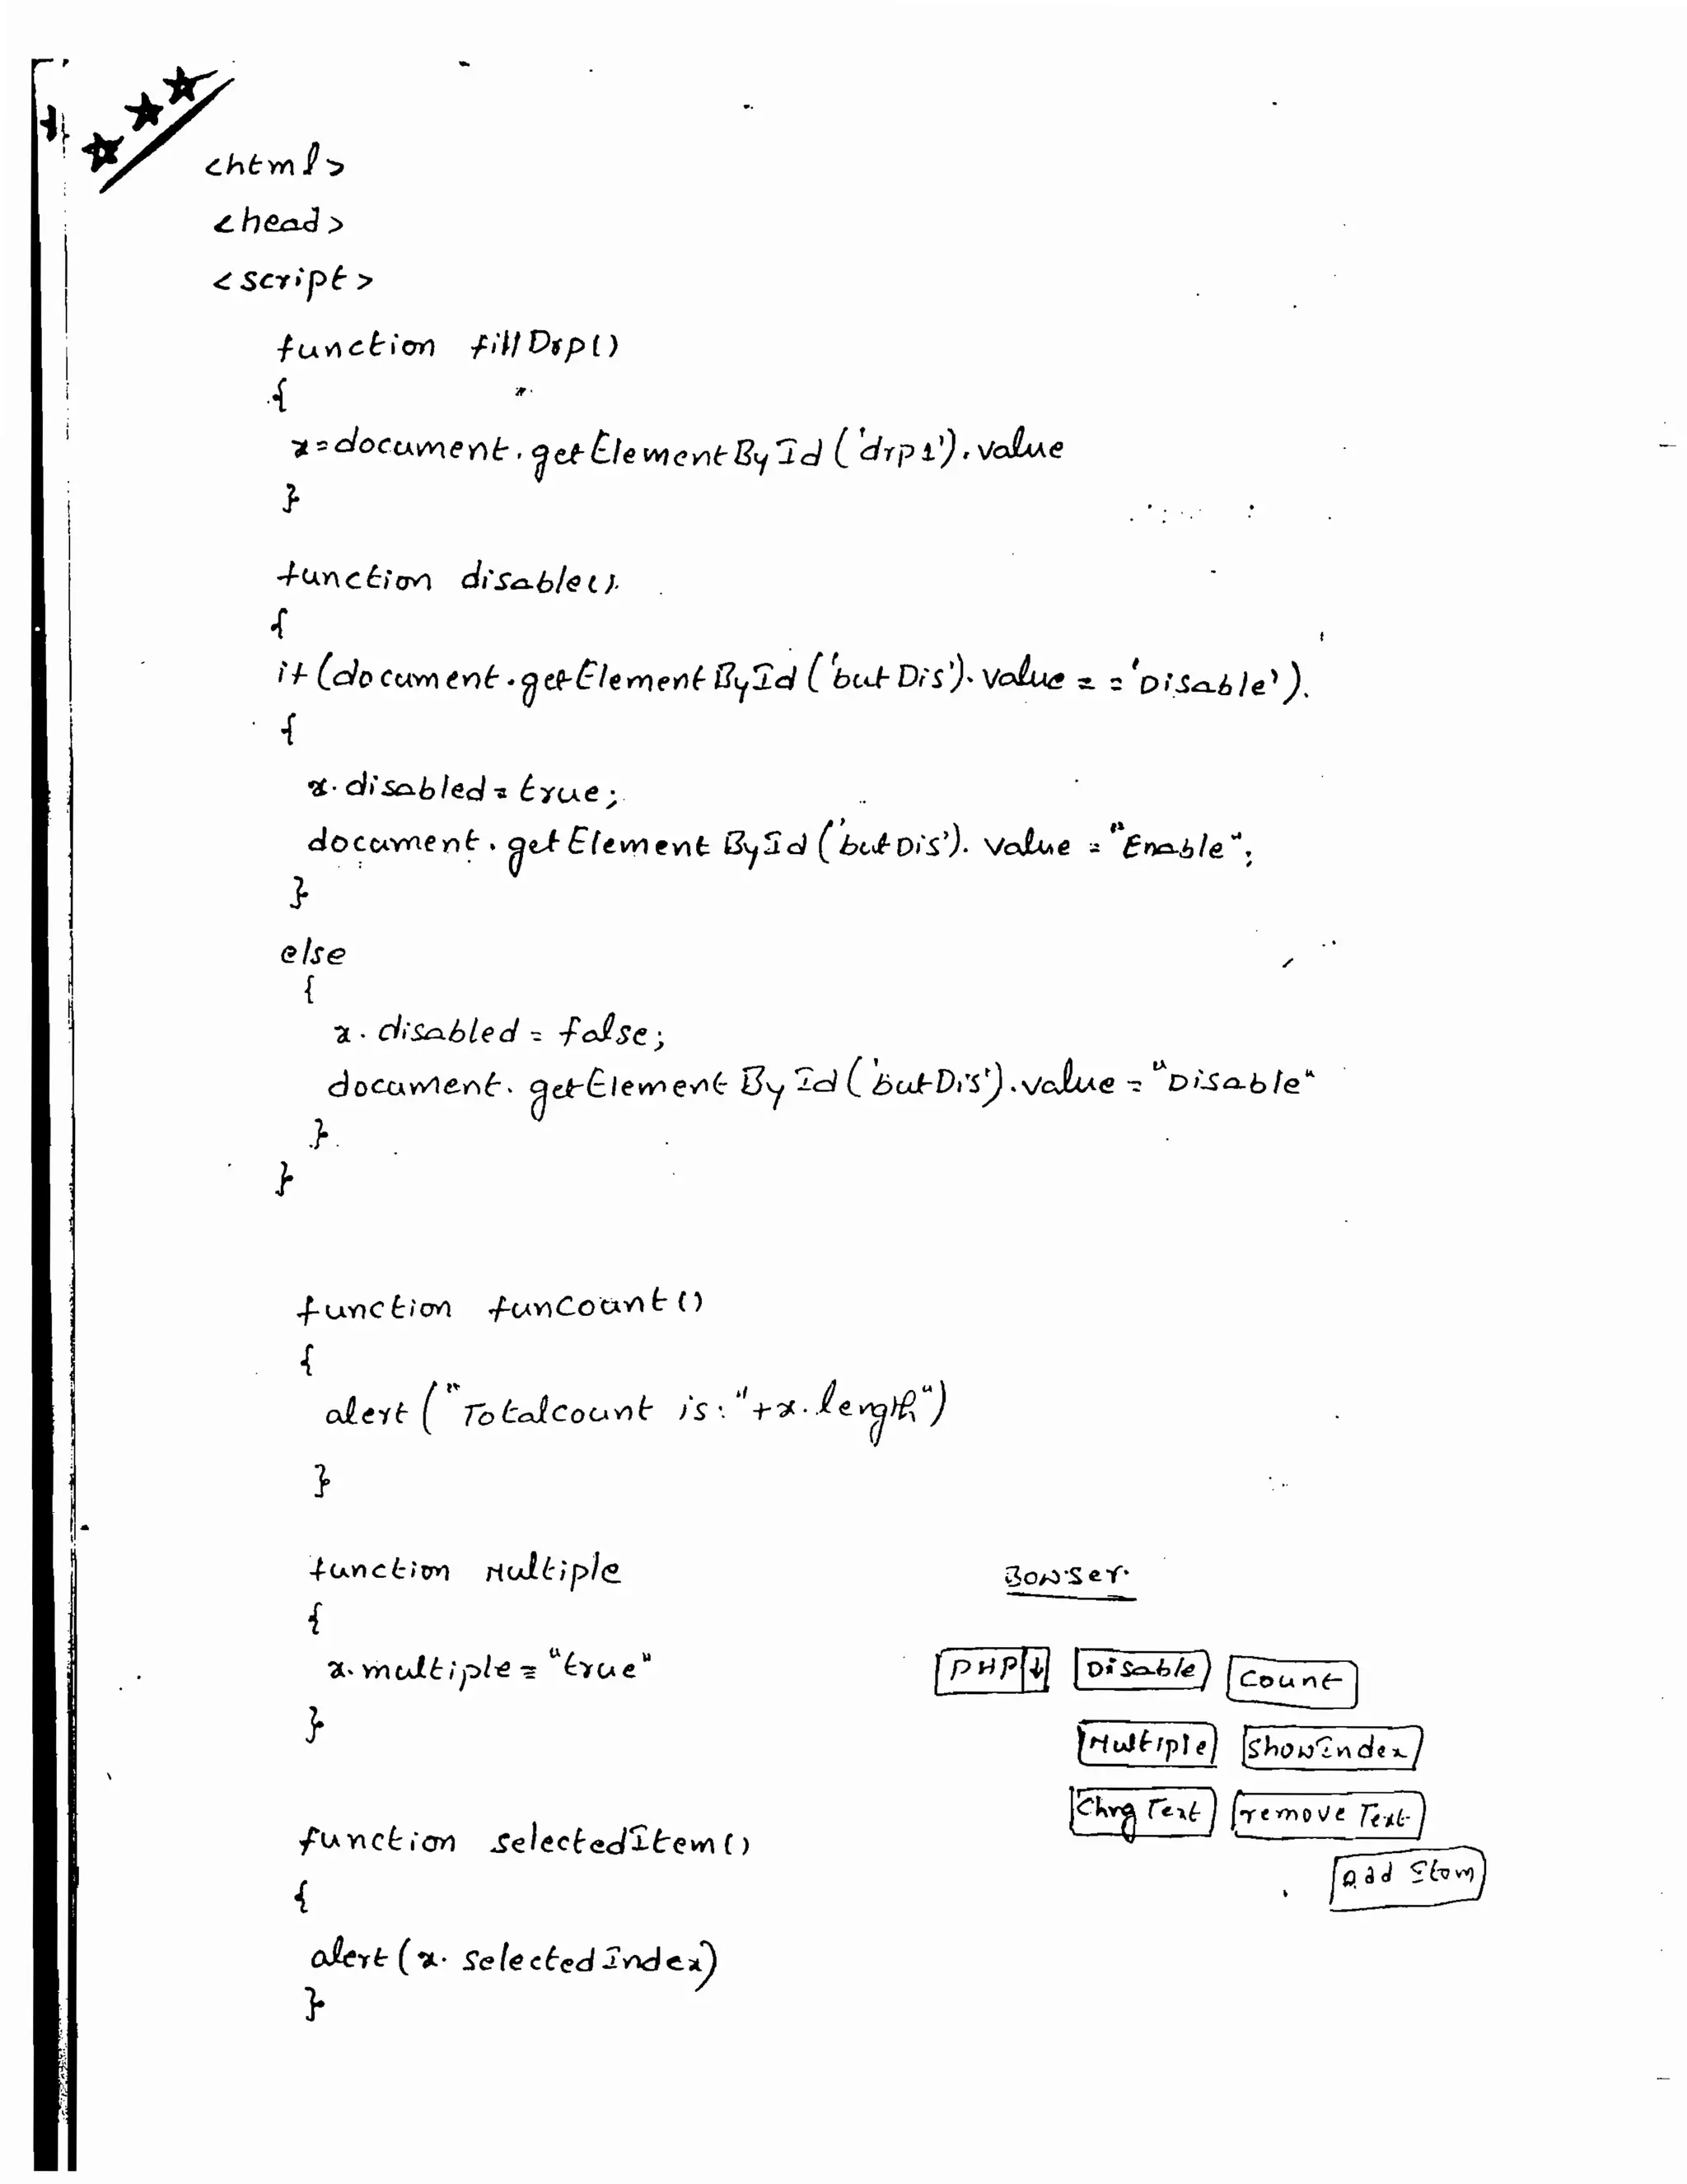 <html>
<head>
<script>
function fillDrp()
{
x=document.getElementById('drp1').value
}
function disable().
{
if(document.getElementById('butDis').value=='Disable').
{
x.disabled=true;
document.getElementById('butDis').value="Enable";
}
else
{
x.disabled=false;
document.getElementById('butDis').value="Disable"
}
}
function funcount()
{
alert("Totalcount is:"+x.length")
}
function Multiple
{
x.multiple="true"
}
function selectedItem()
{
alert(x.selectedIndex)
}
Bowser
PHP ↓ Disable Count
Multiple showIndex
Chng Text remove Text
Add Item